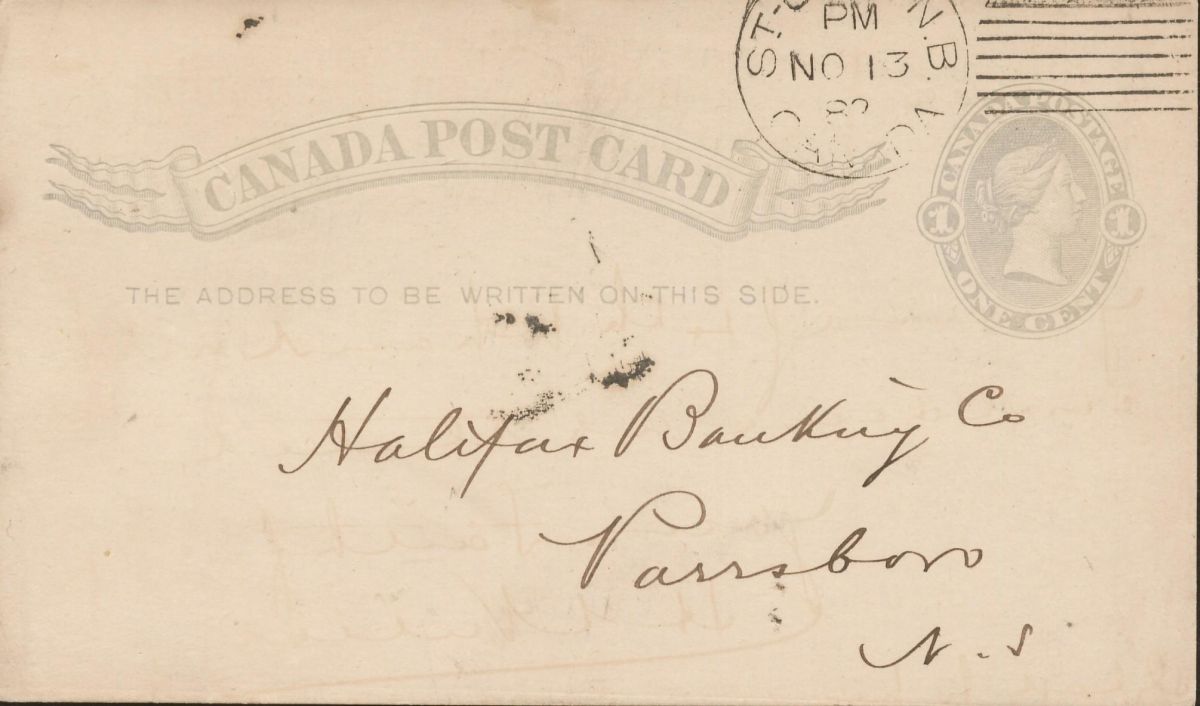 PM
N.B.
NO 13
CANADA POST CARD
CANADA POSTAGE
1 1
ONE CENT
THE ADDRESS TO BE WRITTEN ON THIS SIDE.
Halifax Banking Co
Parrsboro
N.S